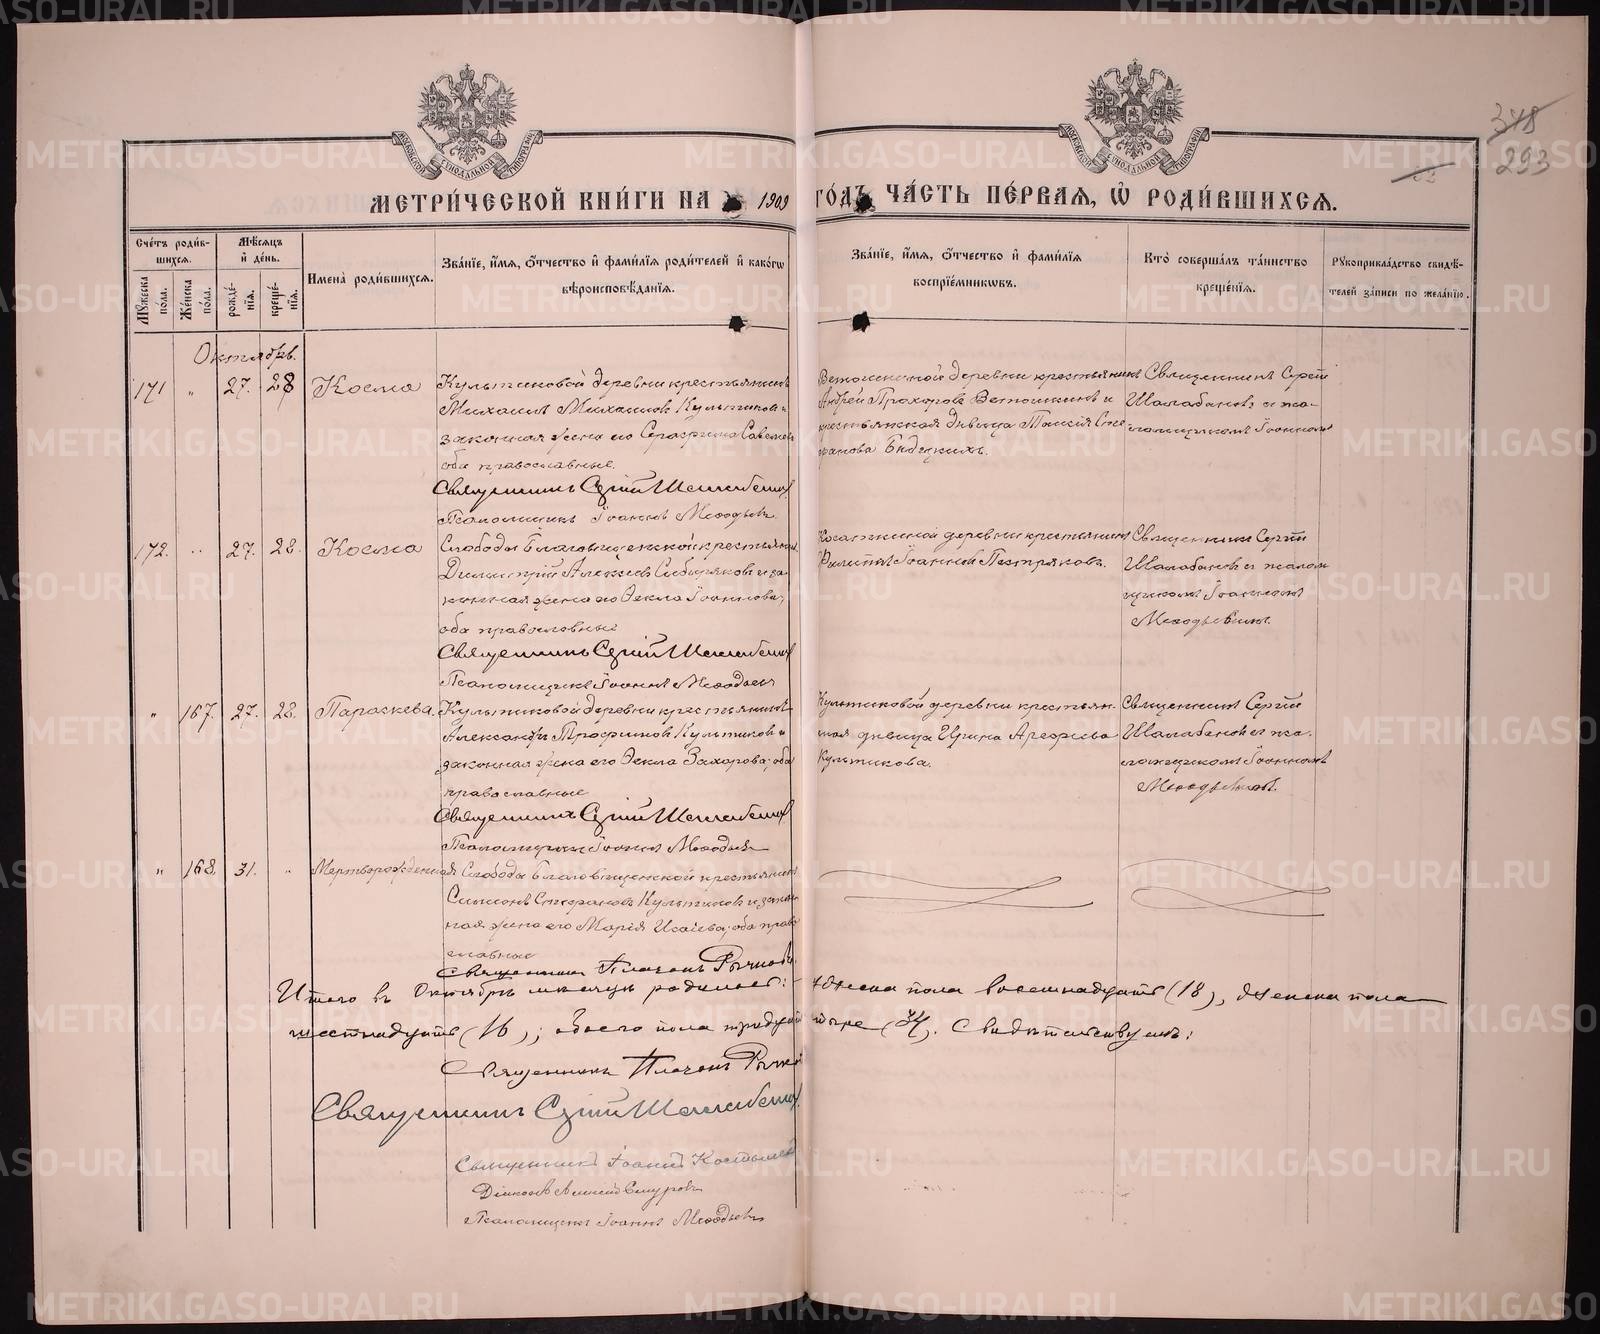 МЕТРИ́ЧЕСКОЙ КНИ́ГИ НА 1909 ГО́ДЪ ЧА́СТЬ ПЕ́РВАЯ, Ѽ РОДИ́ВШИХСЯ.
318
293
Сче́тъ роди́вшихся.
Мꙋ́жеска по́ла.
Же́нска по́ла.
Мѣ́сяцъ и҆ де́нь.
рожде́нїя.
креще́нїя.
Имена̀ роди́вшихся.
Зва́нїе, и҆́мя, ѻ҆́тчество и҆ фами́лїя роди́телей и҆ како́гѡ вѣроисповѣ́данїя.
Зва́нїе, и҆́мя, ѻ҆́тчество и҆ фами́лїя воспрїе́мникѡвъ.
Кто̀ соверша́лъ та́инство креще́нїя.
Рꙋкоприкла́дство свидѣ́телей за́писи по жела́нїю.
Октябрь.
171 " 27. 28 Косма
Культиковой деревни крестьянинъ
Михаилъ Михаиловъ Культиковъ и
законная жена его Серафима Савельева
оба православные.
Священникъ Сергій Шалабановъ
Псаломщикъ Іоаннъ Меѳодьевъ
Ветошкиной деревни крестьянинъ
Андрей Прохоровъ Ветошкинъ и
крестьянская дѣвица Таисія Сте
фанова
Священникъ Сергій
Шалабановъ и пса-
ломщикомъ Іоанномъ
172. " 27. 28. Косма
Слободы Благовѣщенской крестьянинъ
Димитрій Алексѣевъ Сибиряковъ и за-
конная жена его Ѳекла Іоаннова,
оба православные
Священникъ Сергій Шалабановъ
Псаломщикъ Іоаннъ Меѳодьевъ
деревни крестьянинъ
Филиппъ Іоанновъ Пестряковъ.
Священникъ Сергій
Шалабановъ и псалом
щикомъ Іоанномъ
Меѳодьевымъ.
" 167. 27. 28. Параскева.
Культиковой деревни крестьянинъ
Александръ Трофимовъ Культиковъ и
законная жена его Ѳекла Захарова, оба
православные
Священникъ Сергій Шалабановъ
Псаломщикъ Іоаннъ Меѳодьевъ
Культиковой деревни крестьян-
ская дѣвица Ирина Арефьева
Культикова.
Священникъ Сергій
Шалабановъ и пса-
ломщикомъ Іоанномъ
Меѳодьевымъ.
" 168. 31. " Мертворожденная
Слободы Благовѣщенской крестьянинъ
Симеонъ Стефановъ Культиковъ и закон
ная жена его Марія Исаіева, оба право
славные
Священникъ Платонъ Рычковъ
Итого въ Октябрѣ мѣсяцѣ родилось: мужеска пола восемнадцать (18), женска пола
шестнадцать (16); обоего пола тридцать четыре (34). Свидѣтельствуемъ:
Священникъ Платонъ Рычковъ
Священникъ Сергій Шалабановъ
Священникъ Іоаннъ
Псаломщикъ Іоаннъ Меѳодьевъ
METRIKI.GASO-URAL.RU